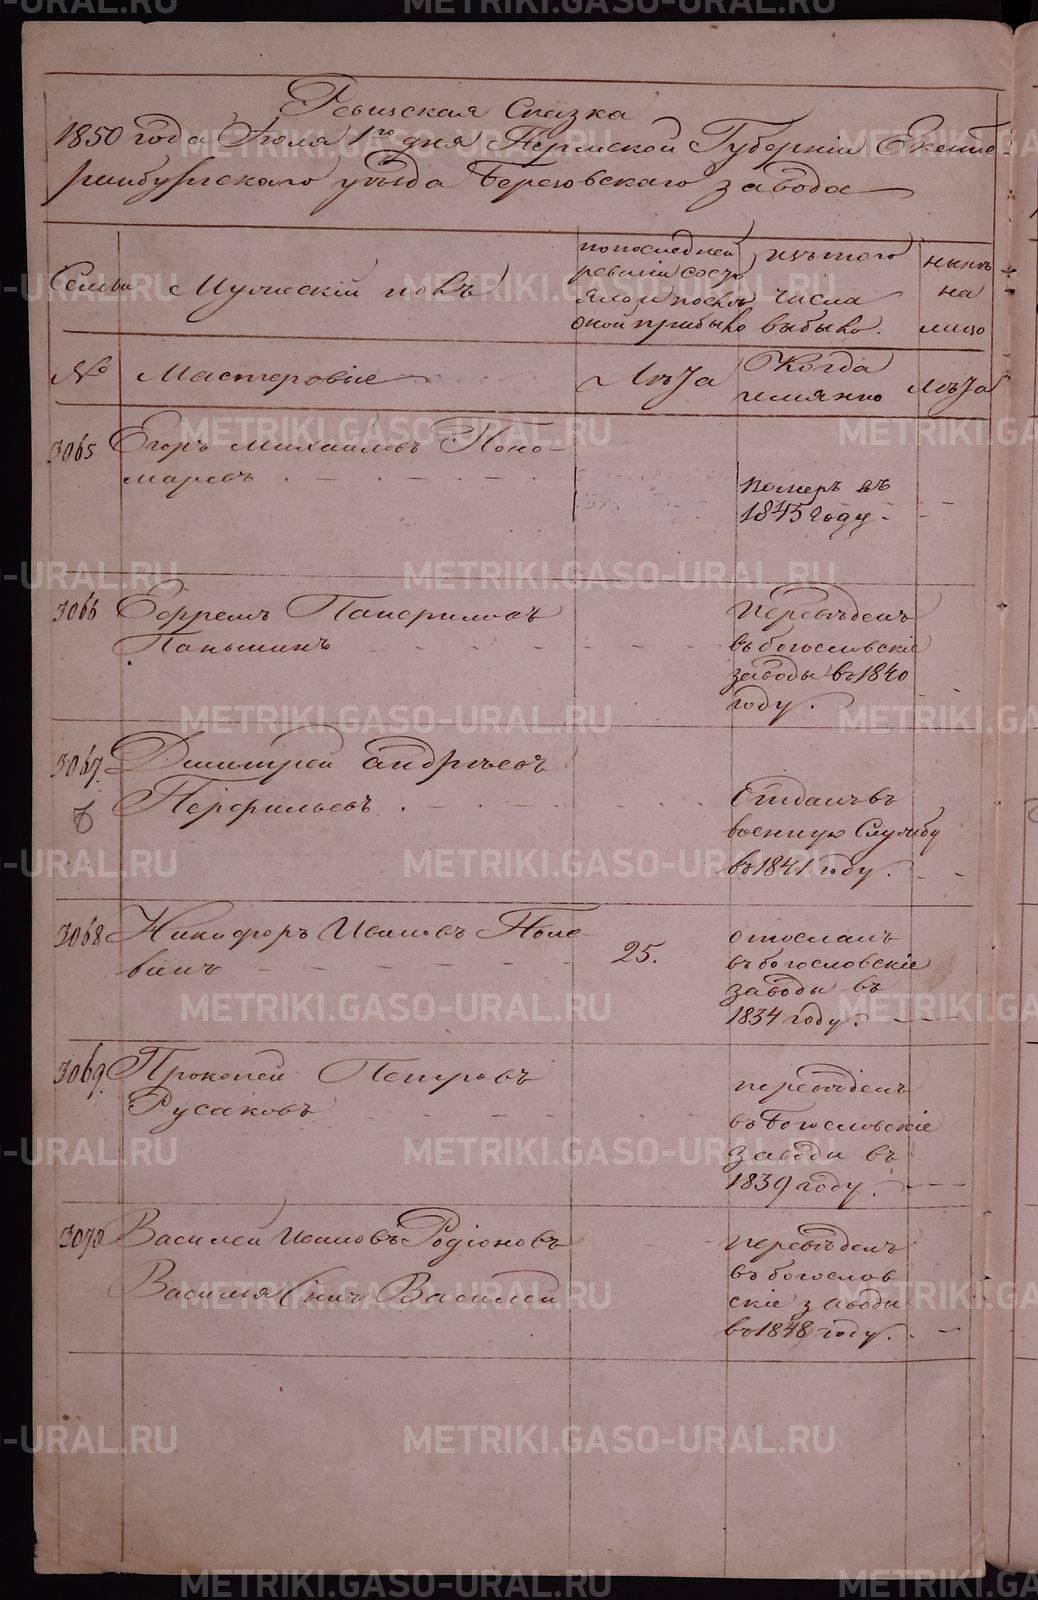 Ревижская Сказка
1850 года Июля 1го дня Пермской Губернiи Екате-
ринбургскаго уѣзда Березовскаго завода
Семьи
Мужескiй полъ
по последней ревизiи состояло и послѣ оной прибыло
изъ того числа выбыло.
нынѣ на лицо
№
Мастеровiе
Лѣта
Когда имянно
Лѣта
3065
Егоръ Михаиловъ Поно-
маревъ
Померъ въ
1845 году
3066
Ефремъ Панфиловъ
Паньшинъ
Переведенъ
въ богословскiе
заводы въ 1840
году.
3067
Дмитрей Андрѣевъ
Перфильевъ
Отданъ въ
военную Службу
въ 1841 году.
3068
Никифоръ Ивановъ Поле-
винъ
25.
отосланъ
въ богословскiе
заводы въ
1834 году.
3069
Прокопей Петровъ
Русаковъ
переведенъ
въ Богословскiе
заводы въ
1839 году.
3070
Василей Ивановъ Родiоновъ
Василья Сынъ Василей
переведенъ
въ богослов
скiе заводы
въ 1848 году.
METRIKI.GASO-URAL.RU